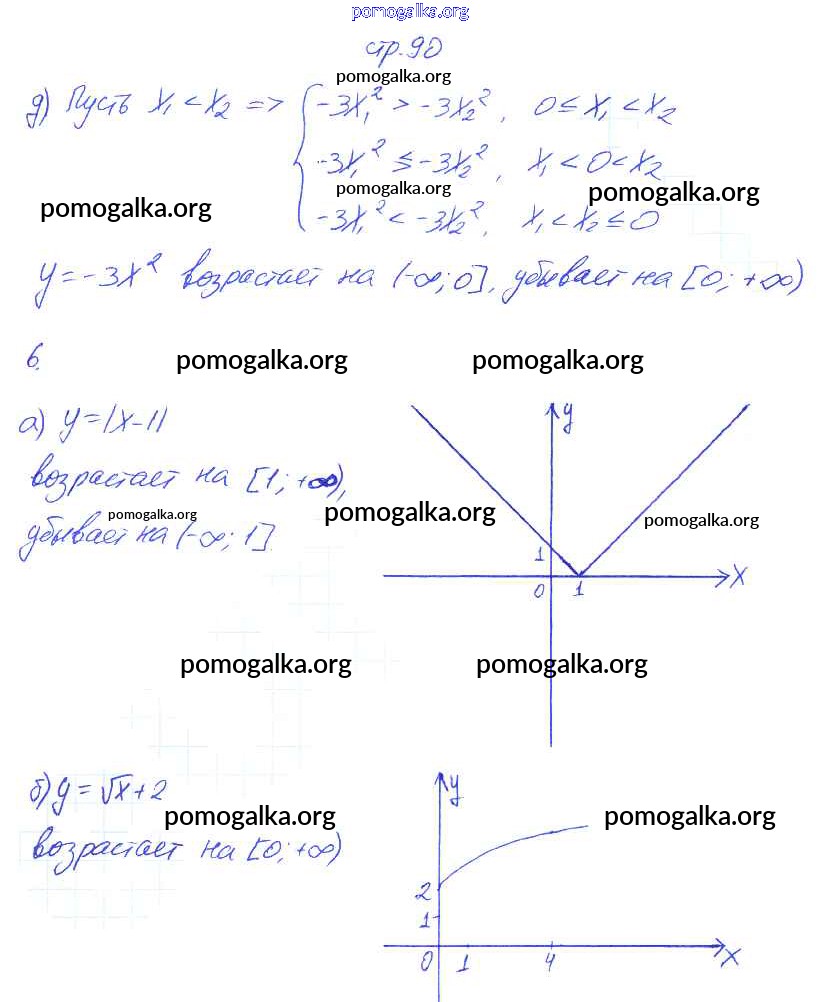 pomogalka.org
стр.90
pomogalka.org
д) Пусть x₁ < x₂ => { -3x₁² > -3x₂², 0 ≤ x₁ < x₂
-3x₁² ≤ -3x₂², x₁ < 0 < x₂
pomogalka.org pomogalka.org
pomogalka.org
-3x₁² < -3x₂², x₁ < x₂ ≤ 0
y = -3x² возрастает на (-∞; 0], убывает на [0; +∞)
6.
pomogalka.org pomogalka.org
а) y = |x-1|
возрастает на [1; +∞),
pomogalka.org pomogalka.org pomogalka.org
убывает на (-∞; 1].
y
1
0 1 x
pomogalka.org pomogalka.org
б) y = √x + 2
pomogalka.org pomogalka.org
возрастает на [0; +∞)
y
2
1
0 1 4 x